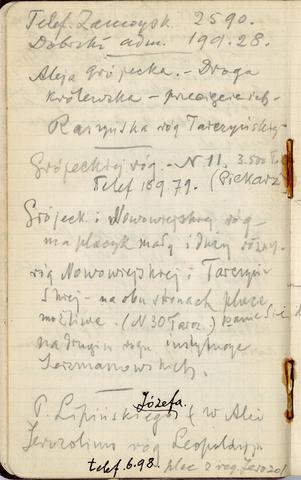 Telef. Zamoysk 2590.
Dobrski adm. 199.28.
Aleja Grójecka. - Droga
królewska - przecięcie ich -
Raszyńska róg Tarczyńskiej
Grójeckiej róg. - N 11. 3.500 ło
Telef 189.79. (Piekarz
Grójeck. i Nowowiejskiej róg -
ma placyk mały i duży różny.
róg Nowowiejskiej i Tarczyń
skiej - na obu stronach place
możliwe. (N 30 Tarcz.)
na drugim rogu instytucye
Jerzmanowskich.
Józefa.
P. Lipińskiego (w Alei
Jerozolims róg Leopoldyn
telef. 6.98. plac z reg. Jerozol